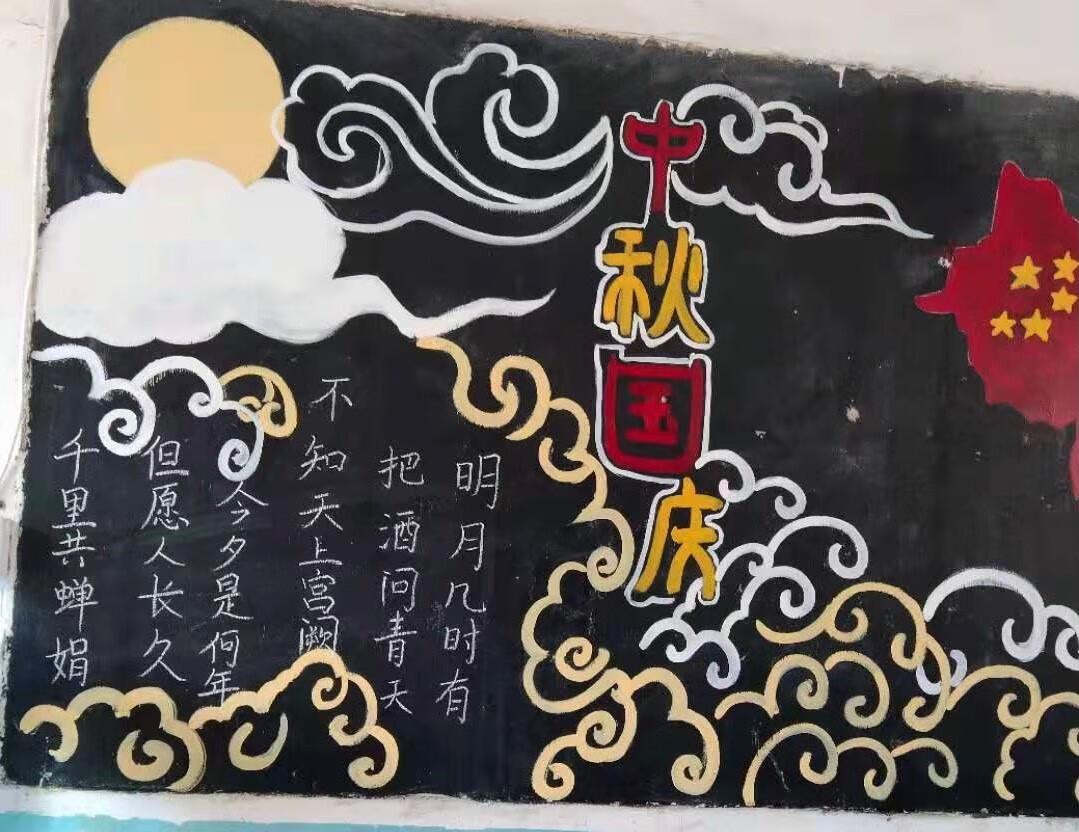 中秋国庆
明月几时有
把酒问青天
不知天上宫阙
今夕是何年
但愿人长久
千里共蝉娟